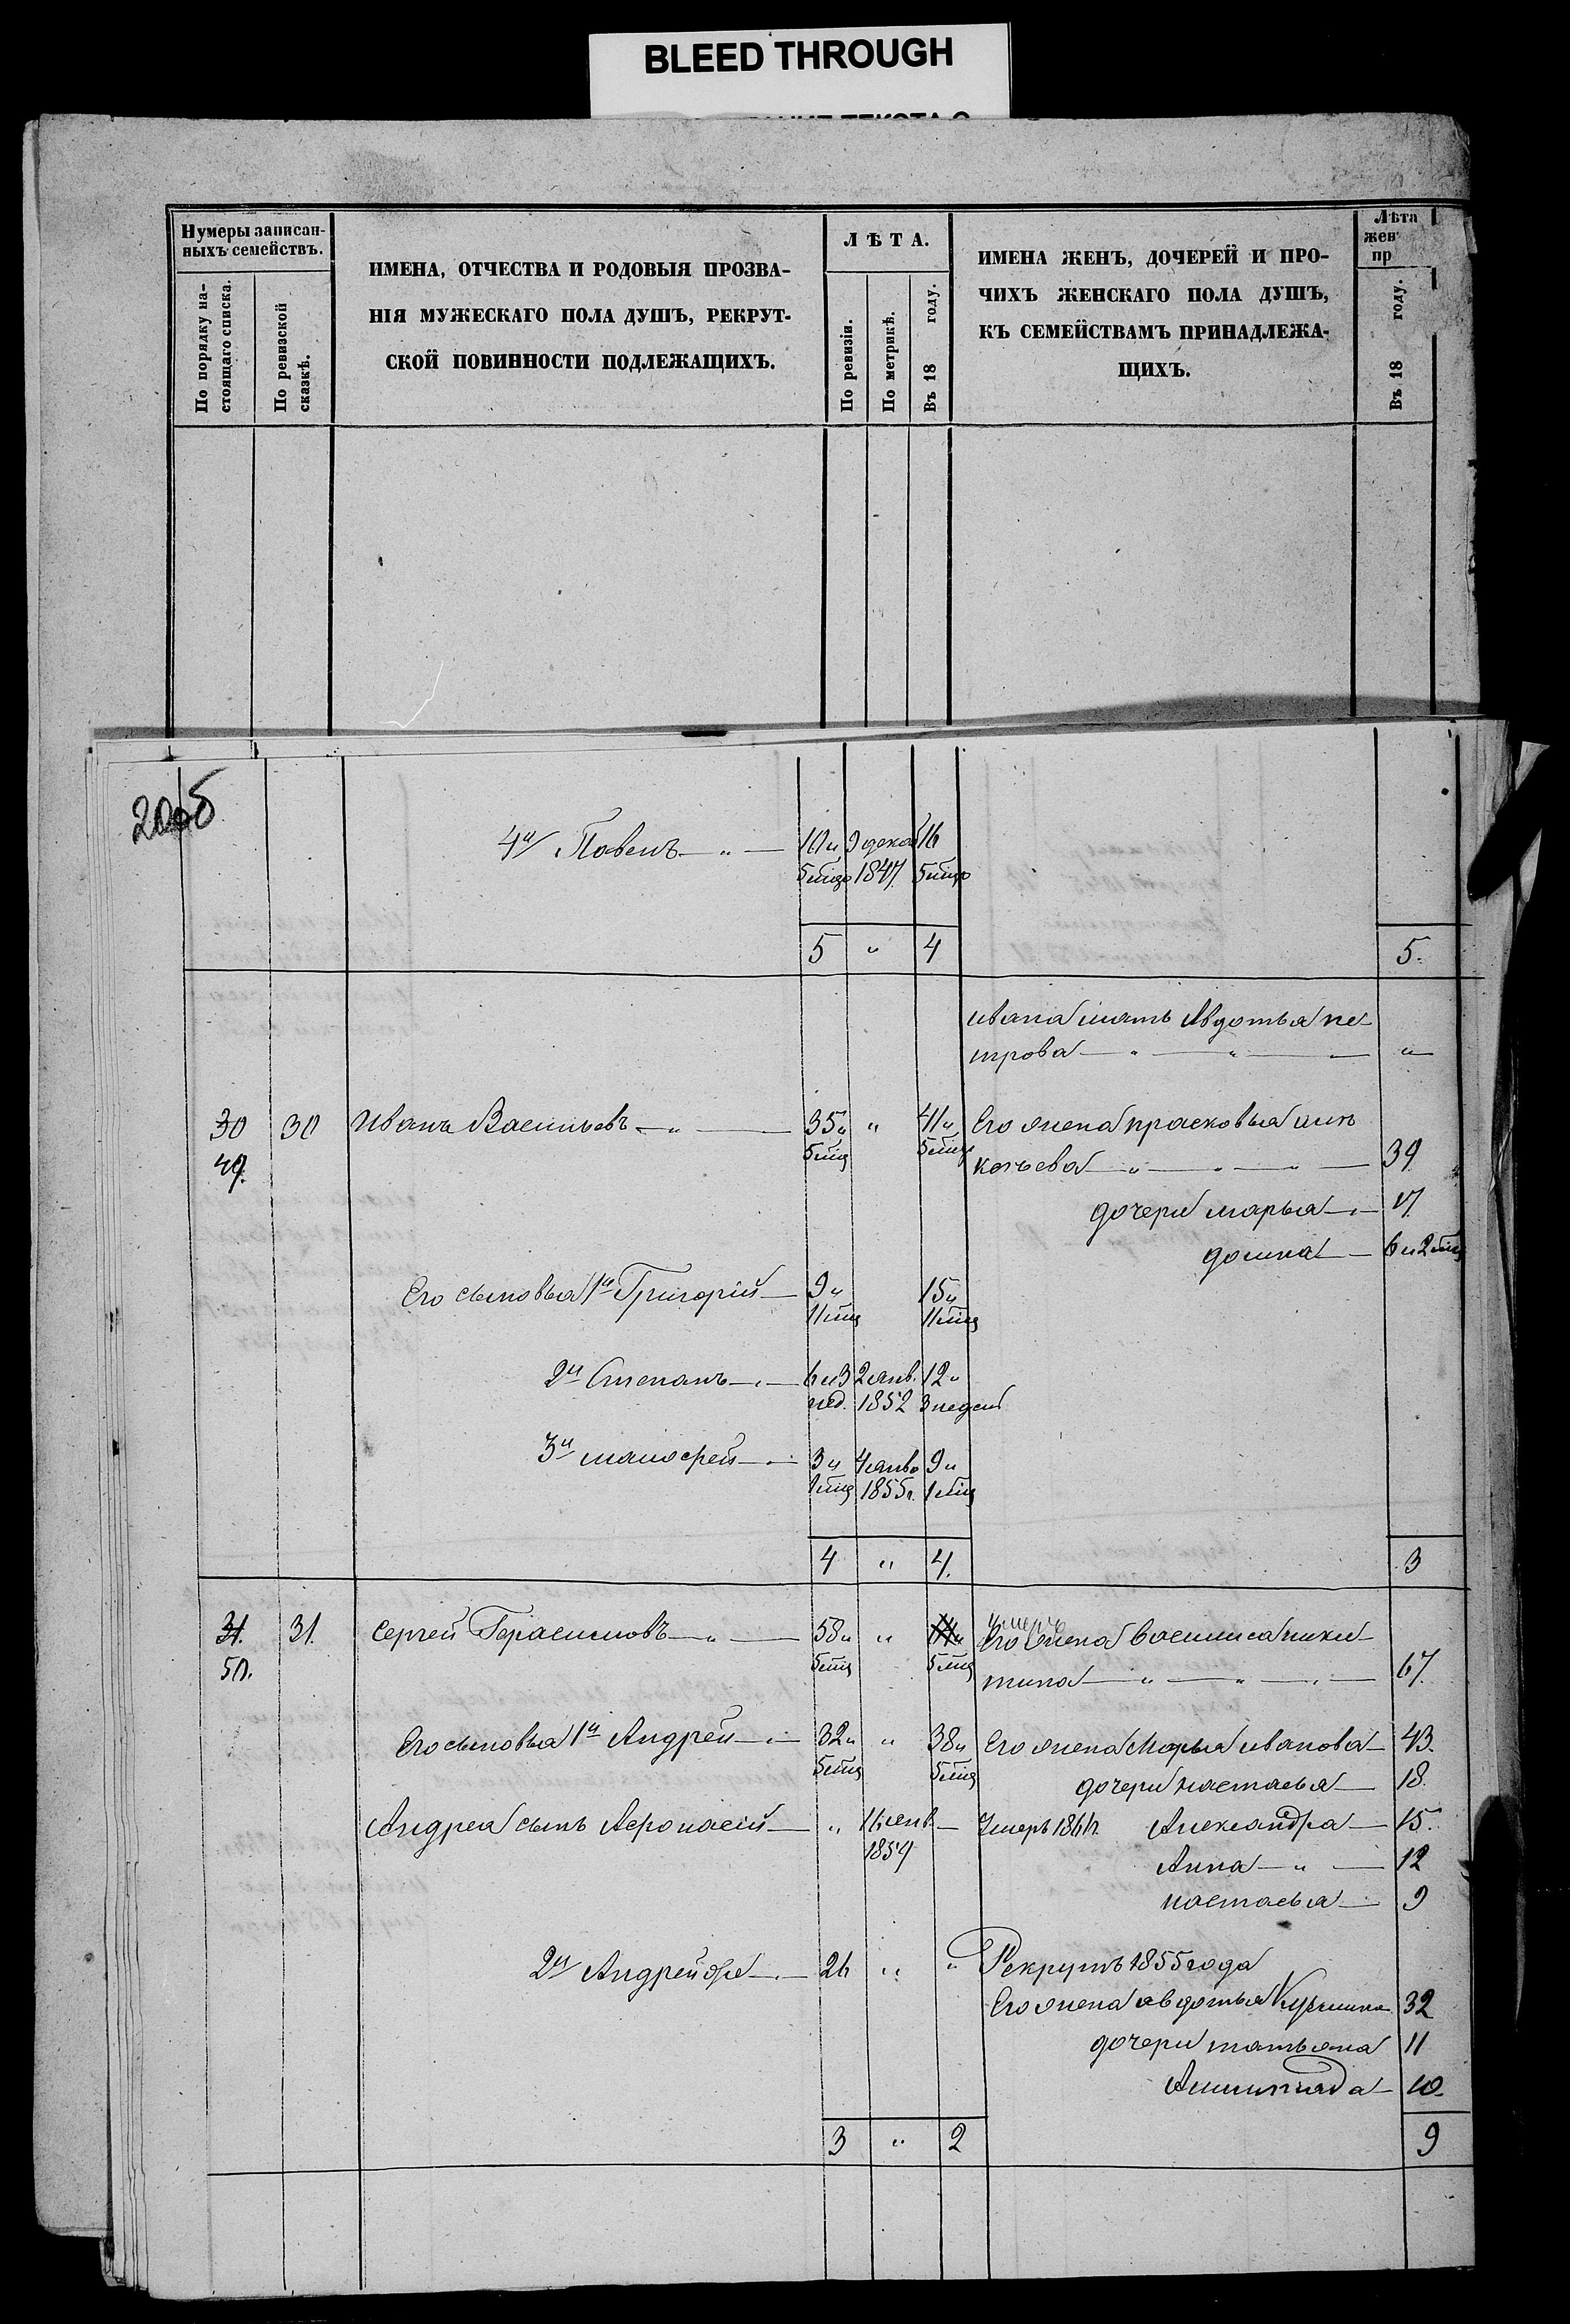 BLEED THROUGH
Нумеры записан-
ныхъ семействъ.
По порядку на-
стоящаго списка.
По ревизской
сказкѣ.
ИМЕНА, ОТЧЕСТВА И РОДОВЫЯ ПРОЗВА-
НІЯ МУЖЕСКАГО ПОЛА ДУШЪ, РЕКРУТ-
СКОЙ ПОВИННОСТИ ПОДЛЕЖАЩИХЪ.
ЛѢТА.
По ревизіи.
По метрикѣ.
Въ 18 году.
ИМЕНА ЖЕНЪ, ДОЧЕРЕЙ И ПРО-
ЧИХЪ ЖЕНСКАГО ПОЛА ДУШЪ,
КЪ СЕМЕЙСТВАМЪ ПРИНАДЛЕЖА-
ЩИХЪ.
Лѣта
жен
пр
Въ 18 году.
4й Павелъ — " — 10 и 9 декаб 16
5 мцо 1847. 5 мцо
5 " 4 5.
ивана мать Авдотья пе-
трова — " — " — "
30 30 Иванъ Васильевъ — " — 35 и " 41 и Его жена прасковья
49. 5 мц 5 мц — " — " — 39
дочери марья — 17
домна — 6 и 2 мц
Его сыновья 1й Григорій — 9 и 15 и
11 мц 11 мц
2й Степанъ — 6 и 3 2 янв. 12 и
нед. 1852 3 недели
3й — 3 и 4 янв 9 и
1 мц 1855 г. 1 мц
4 " 4. 3
31. 31. Сергей Герасимовъ — " — 58 и " умеръ Его жена василиса ники-
50. 5 мц 5 мц тина — " — " — 67.
Его сыновья 1й Андрей — 32 и " 38 и Его жена Марья иванова — 43.
5 мц 5 мц дочери настасья — 18.
Андрея сынъ Афонасій — " янв. — Умеръ Александра — 15.
Анна — " — 12
настасья — 9
2й Андрей же — 26 " " Рекрутъ 1855 года
Его жена авдотья 32
дочери татьяна 11
10.
3 " 2 9